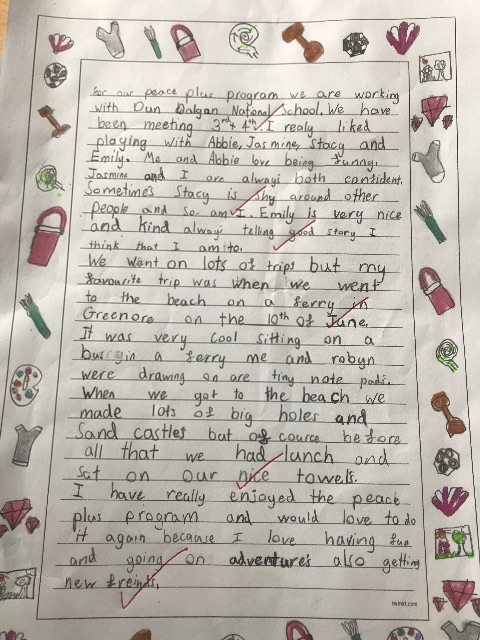 for our peace plus program we are working
with Dun Dalgan National School. We have
been meeting 3rd + 4th. I realy liked
playing with Abbie, Jasmine, Stacy and
Emily. Me and Abbie love being funny.
Jasmine and I are always both confident.
Sometimes Stacy is shy around other
people and so am I. Emily is very nice
and kind always telling good story I
think that I am to.
We went on lots of trips but my
favourite trip was when we went
to the beach on a ferry in
Greenore on the 10th of June.
It was very cool sitting on a
bus in a ferry me and robyn
were drawing on are tiny note pads.
When we got to the beach we
made lots of big holes and
Sand castles but of cource before
all that we had lunch and
sat on our nice towels.
I have really enjoyed the peace
plus program and would love to do
it again because I love having fun
and going on adventures also getting
new freinds.
twinkl.com